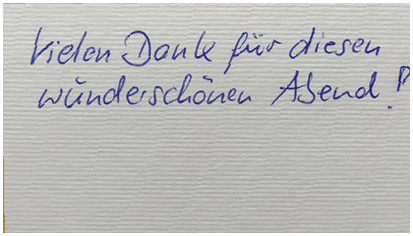 Vielen Dank für diesen
wunderschönen Abend!